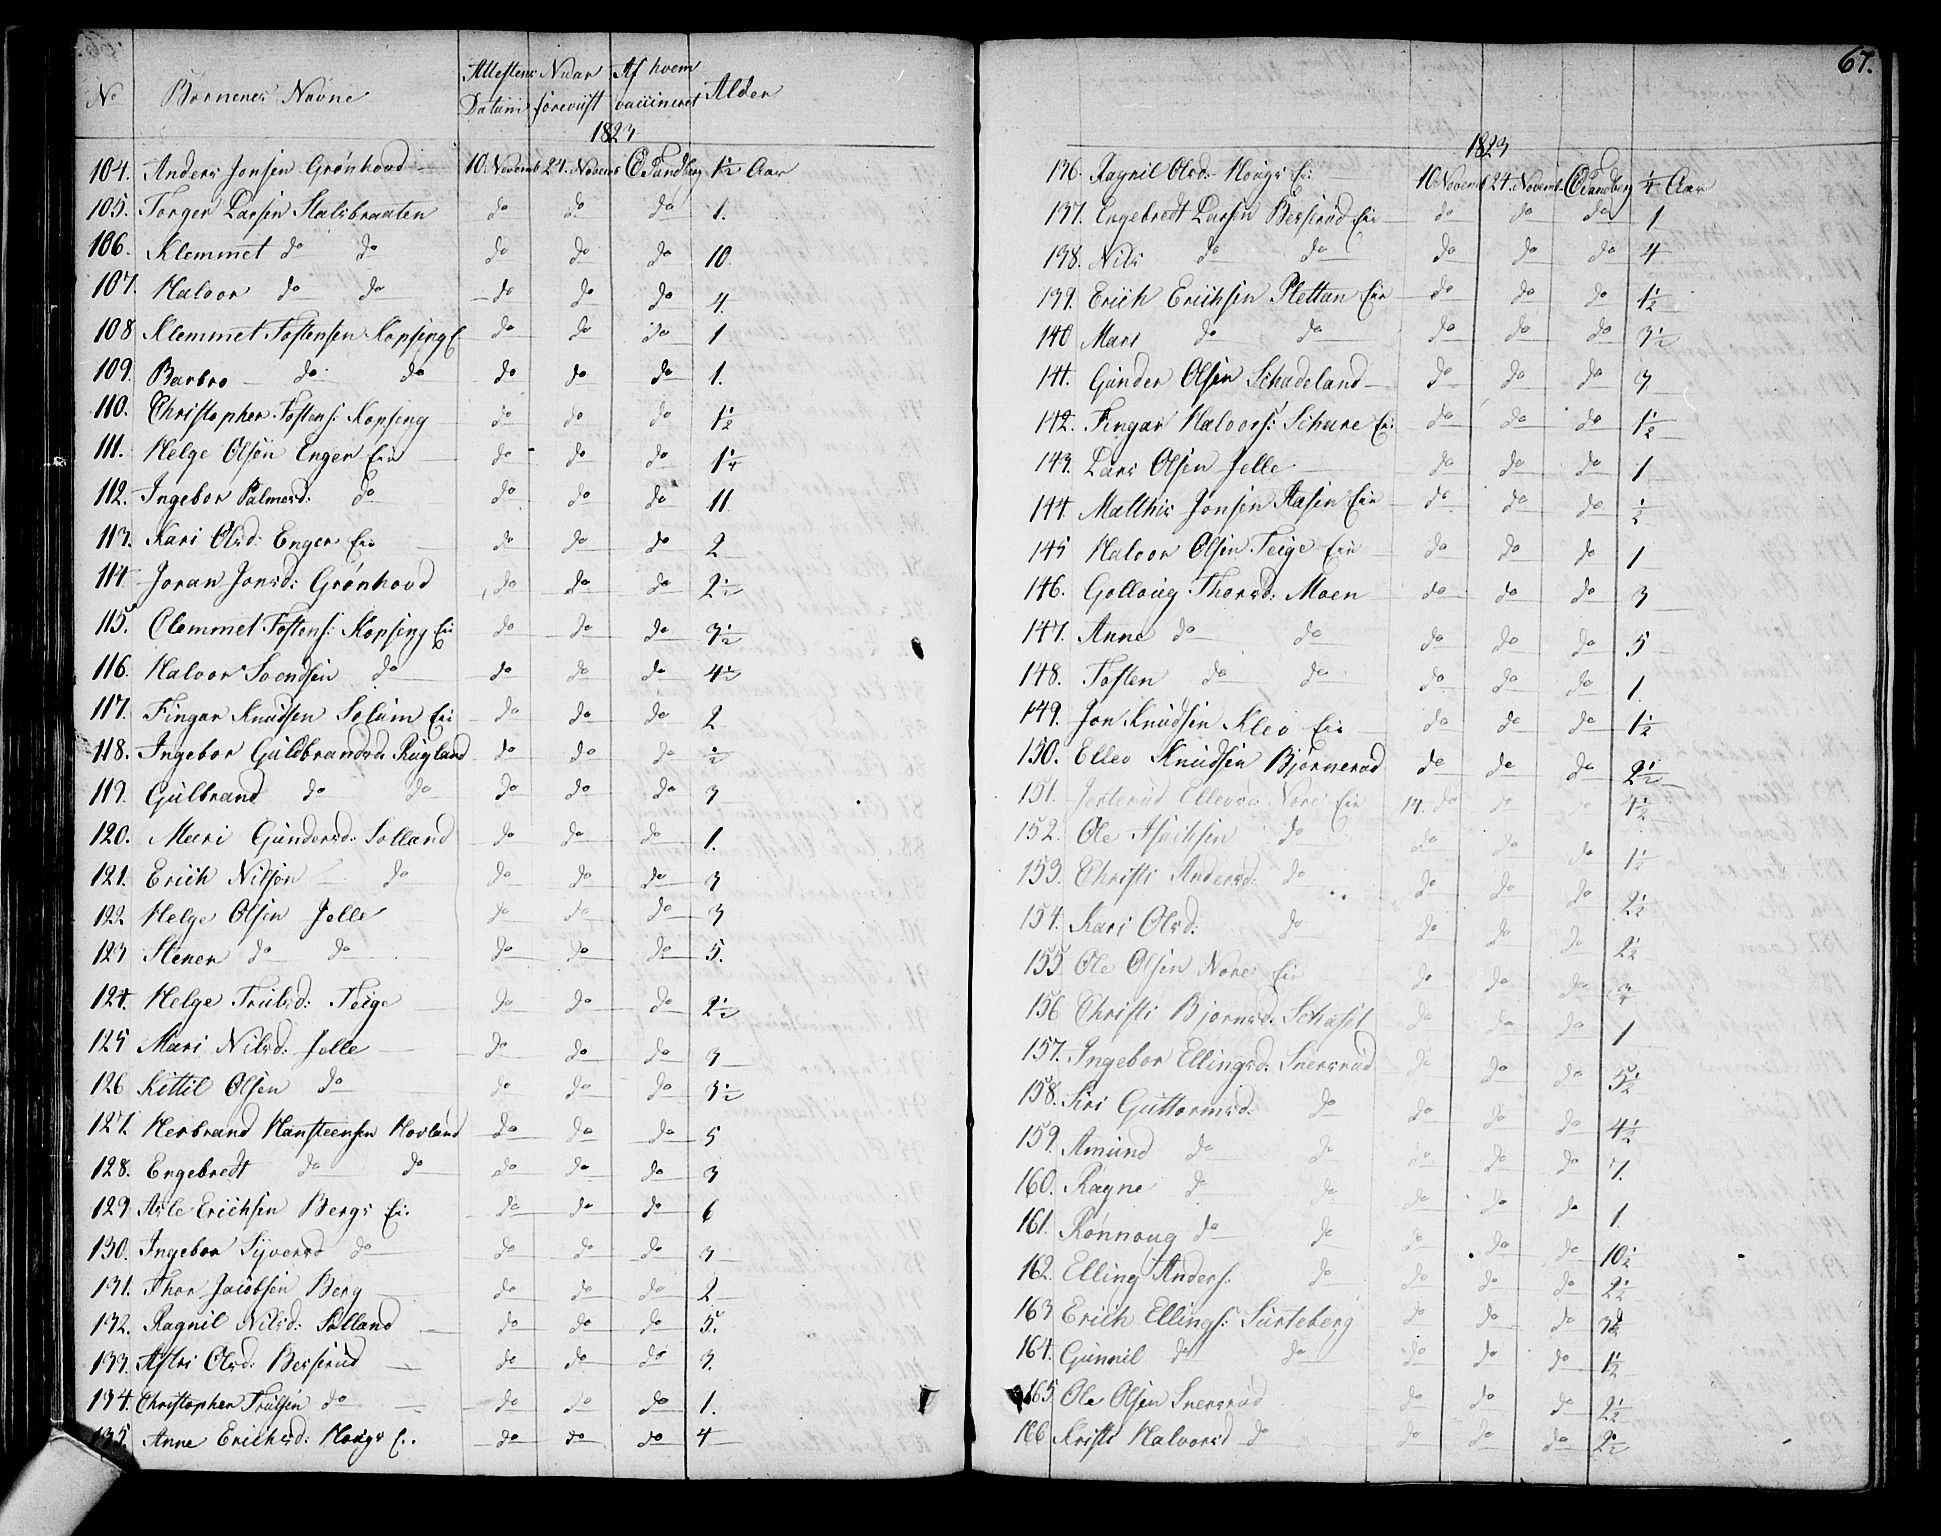 No Börnenes Navne Attestens Datum Naar foreviist Af hvem vaccineret Alder
1823
104. Anders Jonsen Grønhovd 10. Novemb 24. Novemb C Sandberg 1½ Aar
105. Torger Larsen Stalsbraaten do do do 1.
106. Klemmet do do do do do 10.
107. Halvor do do do do do 4.
108 Klemmet Tostensen Kopseng E do do do 1
109. Barbro do do do do do 1.
110. Christopher Tostens: Kopseng do do do 1½
111. Helge Olsøn Enger Eie do do do 1¼
112. Ingebor Palmesd: do do do do 11
113. Kari Olsd: Enger Eie do do do 2
114 Joran Jonsd: Grønhovd do do do 2½
115. Clemmet Tostens: Kopseng Ei do do do 3½
116. Halvor Svendsen do do do do 4½
117. Fingar Knudsen Solum Ei do do do 2
118. Ingebor Guldbrandsd. Rugland do do do ½
119. Gulbrand do do do do do 3
120. Mari Gundersd: Solland do do do 1.
121. Erich Nilsøn do do do do 3
122 Helge Olsen Jelle do do do 3
123 Stener do do do do do 5.
124. Helge Trulsd: Teige do do do 2½
125 Mari Nilsd: Jelle do do do 3
126 Kittil Olsen do do do do 3½
127. Herbrand Hansteensen Hovland do do do 5
128. Engebredt do do do do do 3
129 Asle Erichsen Bergs Ei. do do do 6
130. Ingebor Syversd do do do do 3
131. Thor Jacobsen Berg do do do 2
132. Ragnil Nilsd: Solland do do do 5.
133. Astri Olsd: Besserud do do do 3.
134. Christopher Trulsen do do do do 1.
135. Anne Erichsd: Hougs E. do do do 4
67.
1823
136. Ragnil Olsd: Hougs Ei 10 Novemb 24. Novemb. C Sandberg ¼ Aar
137. Engebredt Larsen Besserud Eie do do do 1
138. Nils do do do do do 4
139. Erich Erichsen Plettan Eie do do do 1½
140 Mari do do do do do 3½
141. Gunder Olsen Schadeland do do do 3
142. Fingar Halvors: Schure Ei: do do do 1½
143. Lars Olsen Jelle do do do 1
144. Matthis Jonsen Stasen Eie do do do ½
145 Halvor Olsen Teige Eie do do do 1
146. Golloug Thorsd: Moen do do do 3
147. Anne do do do do do 5
148. Tosten do do do do do 1.
149. Jon Knudsen Klev Eie do do do 1½
150. Ellev Knudsen Bjørnerud do do do 2½
151. Ellevsd Nore Eie 14. do do do 4½
152. Ole do do do do 1½
153. Christi Andersd: do do do do 2½
154. Kari Olsd: do do do do 2½
155. Ole Olsen Nore Eie do do do ¾
156 Christi Bjørnsd: do do do 1
157. Ingebor Ellingsd: Snersrud do do do 5½
158. Siri Guttormsd: do do do do 4½
159. Amund do do do do do 7.
160. Ragne do do do do do 1.
161. Rønnoug do do do do do 10½
162. Elling Anders: do do do do 2½
163 Erich Ellings: Surteberg do do do 3½
164. Gunnil do do do do do 1½
165. Ole Olsen Snersrud do do do 2½
166 Kristi Halvorsd do do do do 2½